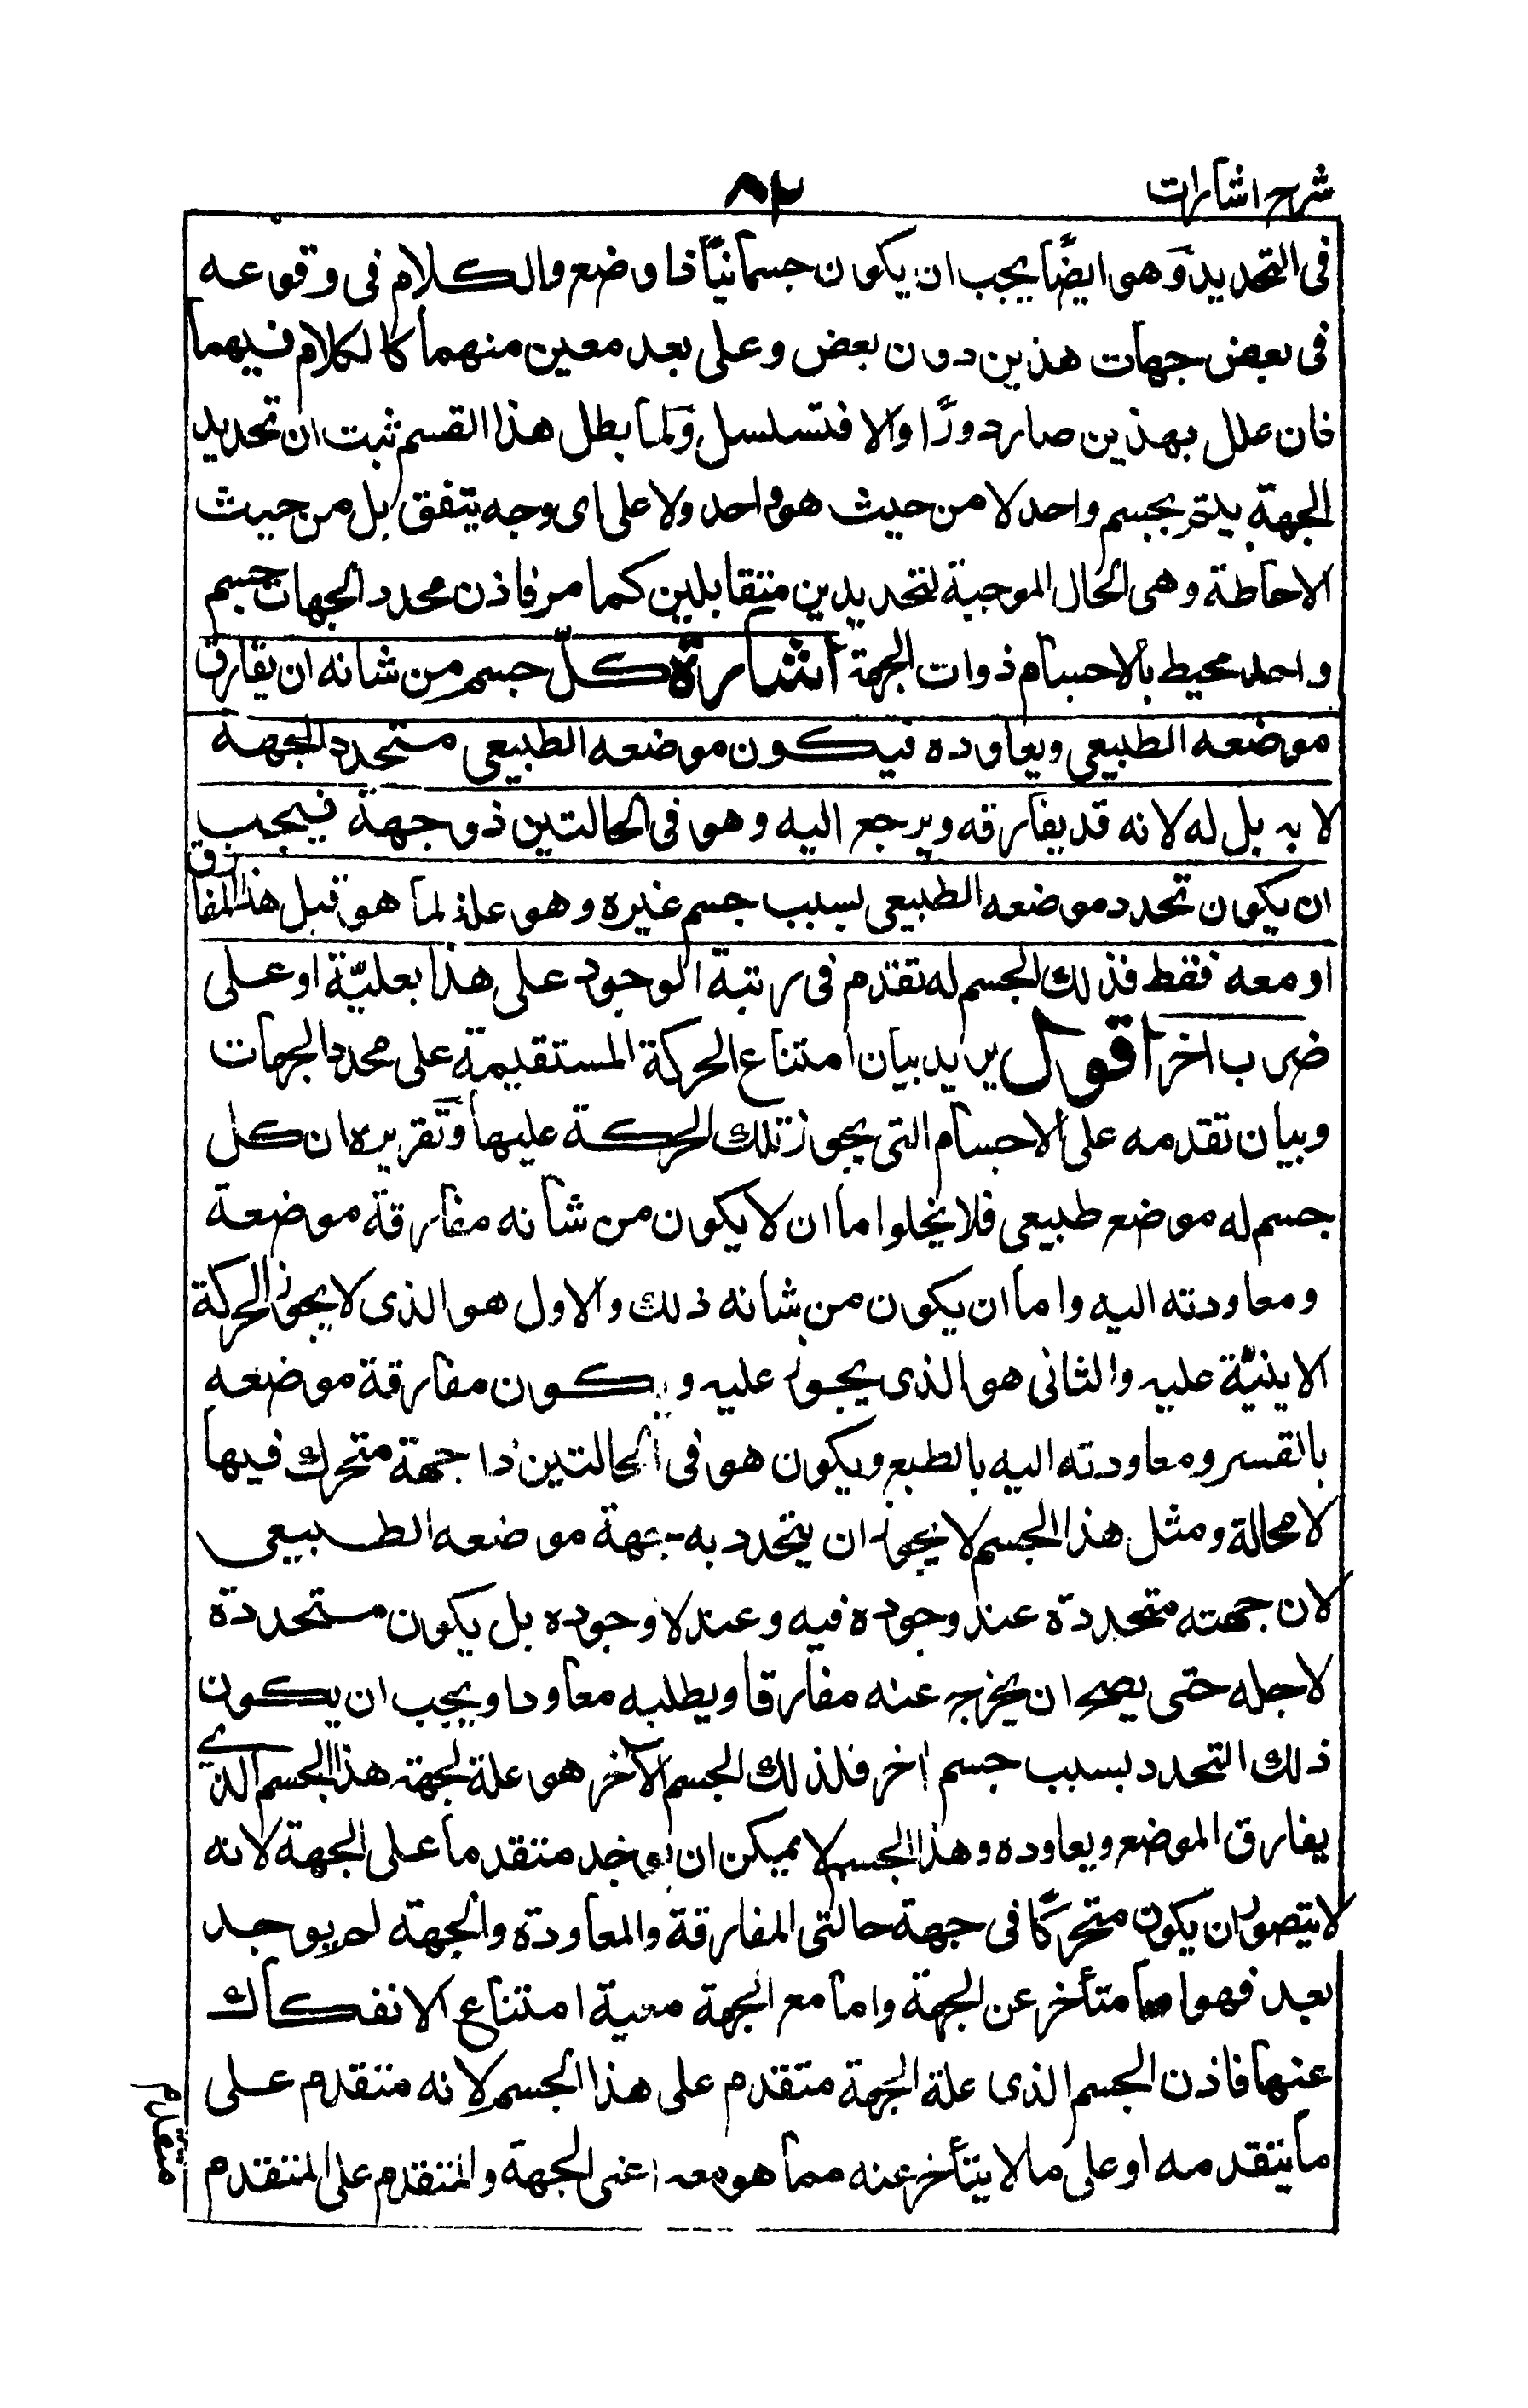 شرح اشارات
٨٢
فى التحديد وهو ايضًا يجب ان يكون جسمانيًّا ذا وضع والكلام فى وقوعه
فى بعض جهات هذين دون بعض وعلى بعد معين منهما كالكلام فيهما
فان علل بهذين صار دورًا والا فتسلسل ولما بطل هذا القسم ثبت ان تحديد
الجهة يتم بجسم واحد لا من حيث هو واحد ولا على اى وجه يتفق بل من حيث
الاحاطة وهى الحال الموجبة لتحديدين متقابلين كما مر فاذن محدد الجهات جسم
واحد محيط بالاجسام ذوات الجهة اشارة كلّ جسم من شانه ان يفارق
موضعه الطبيعى ويعاوده فيكون موضعه الطبيعى متحدد الجهة
لا به بل له لانه قد يفارقه ويرجع اليه وهو فى الحالتين ذو جهة فيجب
ان يكون تحدد موضعه الطبيعى بسبب جسم غيره وهو علة لما هو قبل هذا المفارق
او معه فقط فذلك الجسم له تقدم فى رتبة الوجود على هذا بعليّة او على
ضرب اخر اقول يريد بيان امتناع الحركة المستقيمة على محدد الجهات
وبيان تقدمه على الاجسام التى يجوز تلك الحركة عليها وتقريره ان كل
جسم له موضع طبيعى فلا يخلوا ما ان لا يكون من شانه مفارقة موضعة
ومعاودته اليه واما ان يكون من شانه ذلك والاول هو الذى لا يجوز الحركة
الاينيّة عليه والثانى هو الذى يجوز عليه ويكون مفارقة موضعه
بالقسر ومعاودته اليه بالطبع ويكون هو فى الحالتين ذا جهة متحرك فيها
لا محالة ومثل هذا الجسم لا يجوز ان يتحدد به جهة موضعه الطبيعى
لان جهته متحددة عند وجوده فيه وعند لا وجوده بل يكون متحددة
لاجله حتى يصح ان يخرج عنه مفارقا ويطلبه معاودا ويجب ان يكون
ذلك التحدد بسبب جسم اخر فلذلك الجسم الآخر هو علة لجهة هذا الجسم الذى
يفارق الموضع ويعاوده وهذا الجسم لا يمكن ان يوجد متقدما على الجهة لانه
لا يتصور ان يكون متحركًا فى جهة حالتى المفارقة والمعاودة والجهة لم يوجد
بعد فهو اما متأخر عن الجهة واما مع الجهة معية امتناع الانفكاك
عنها فاذن الجسم الذى علة الجهة متقدم على هذا الجسم لانه متقدم على
ما يتقدمه او على ما لا يتأخر عنه مما هو معه اعنى الجهة والمتقدم على المتقدم
متقدم